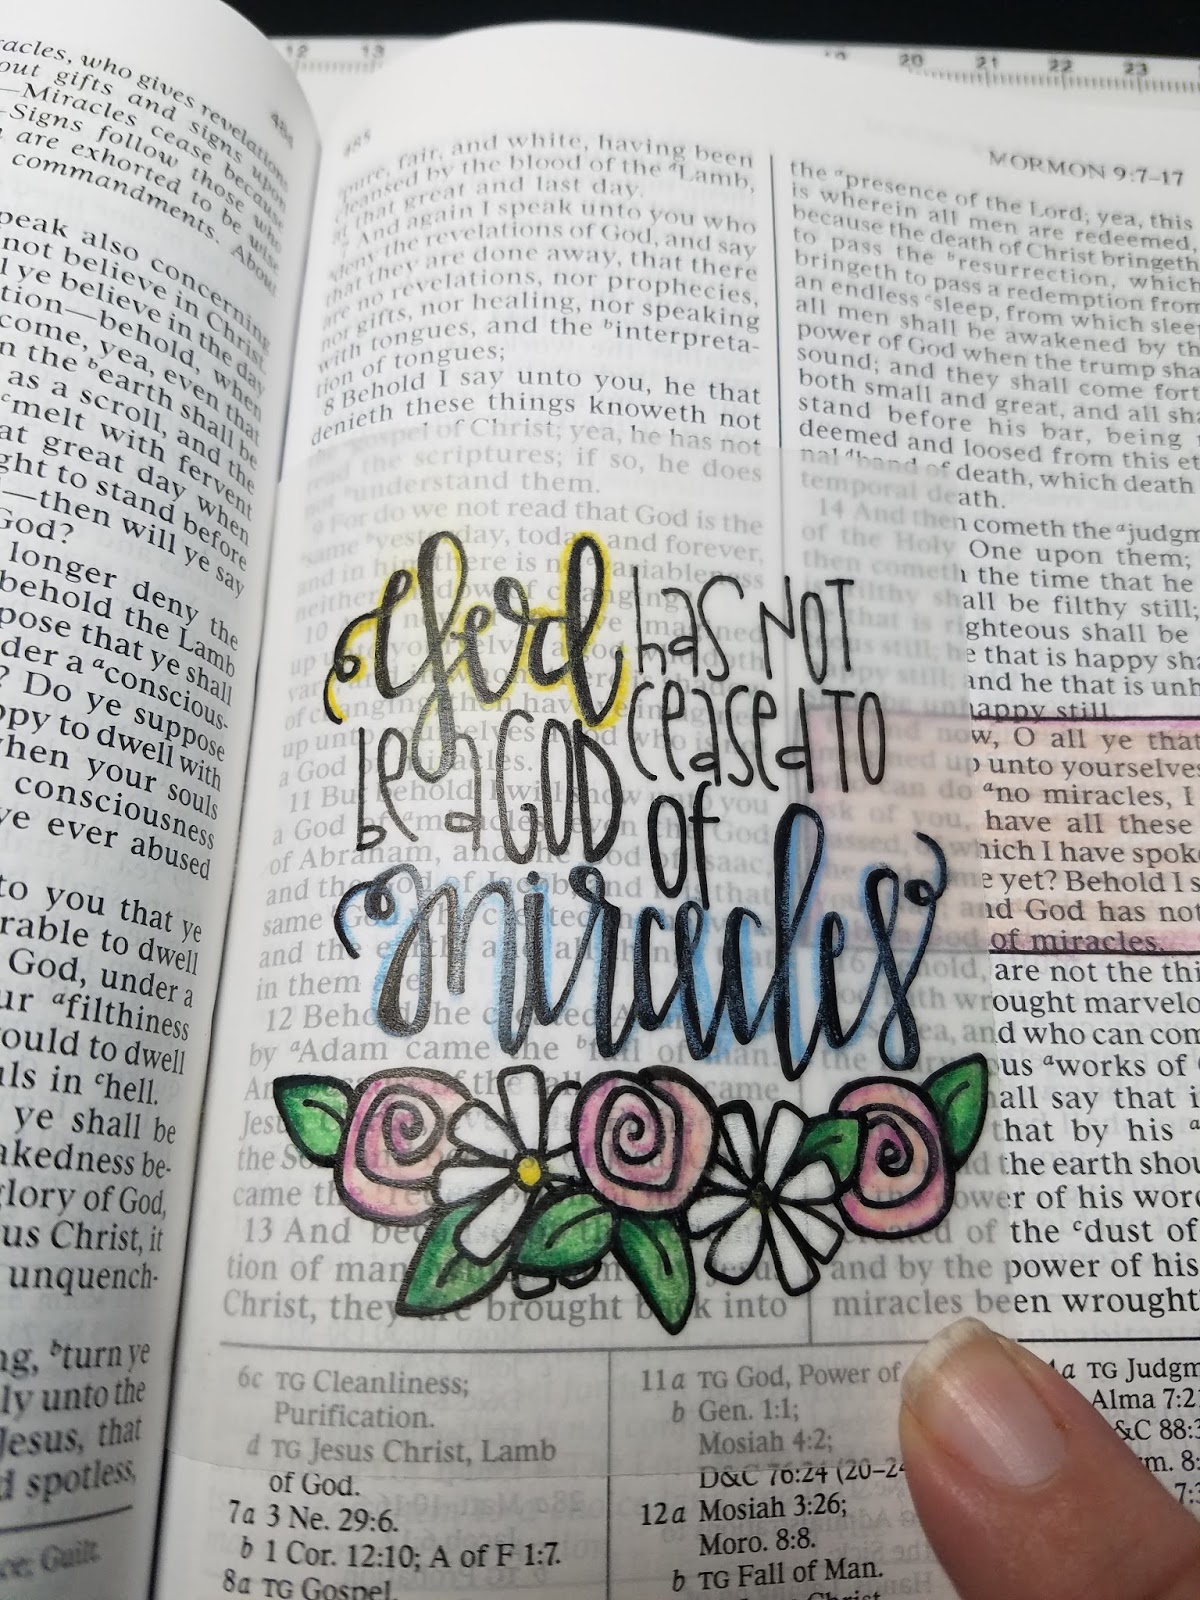 12 13 20 21 22 23
acles, who gives revelations
out gifts and signs upon
—Miracles cease because
Signs follow those who
are exhorted to be wise
commandments. About
peak also concerning
not believe in Christ.
l ye believe in the day
tion—behold, when
come, yea, even that
n the ᵇearth shall be
as a scroll, and the
ᶜmelt with fervent
at great day when
ght to stand before
—then will ye say
God?
longer deny the
behold the Lamb
pose that ye shall
der a ᵃconscious-
? Do ye suppose
ppy to dwell with
when your souls
consciousness
ve ever abused
to you that ye
rable to dwell
God, under a
ur ᵃfilthiness
ould to dwell
ls in ᶜhell.
ye shall be
akedness be-
glory of God,
us Christ, it
unquench-
ng, ᵇturn ye
ly unto the
Jesus, that
d spotless,
Guilt.
485
MORMON 9:7–17
pure, fair, and white, having been
cleansed by the blood of the ᵈLamb,
at that great and last day.
7 And again I speak unto you who
deny the revelations of God, and say
that they are done away, that there
are no revelations, nor prophecies,
nor gifts, nor healing, nor speaking
with tongues, and the ᵇinterpreta-
tion of tongues;
8 Behold I say unto you, he that
denieth these things knoweth not
the gospel of Christ; yea, he has not
read the scriptures; if so, he does
not ᵃunderstand them.
9 For do we not read that God is the
same ᵇyesterday, today, and forever,
and in him there is no ᶜvariableness
neither shadow of changing?
God has NOT
ceased TO
be a GOD
of
miracles
11 But behold, I will show unto you
a God of ᵃmiracles, even the God
of Abraham, and the God of Isaac,
and the God of Jacob; and
same ᵇGod who created
and the earth and all things
in them are.
12 Behold, he created Adam,
by ᵃAdam came the ᵇfall of man.
came
the
came the
13 And because
tion of man
Christ, they are brought back into
the ᵃpresence of the Lord; yea, this
is wherein all men are redeemed,
because the death of Christ bringeth
to pass the ᵇresurrection, which
bringeth to pass a redemption from
an endless ᶜsleep, from which sleep
all men shall be awakened by th
power of God when the trump sha
sound; and they shall come fort
both small and great, and all sha
stand before his bar, being
deemed and loosed from this et
nal ᵈband of death, which death
temporal death.
14 And then cometh the ᵃjudgm
of the Holy One upon them;
then cometh the time that he
filthy shall be filthy still;
that is righteous shall be
he that is happy sha
and he that is unh
happy still.
w, O all ye that
up unto yourselves
can do ᵃno miracles, I
of you, have all these
passed, of which I have spoke
e yet? Behold I s
and God has not
of miracles.
16 Behold, are not the thi
wrought marvelo
Yea, and who can com
ous ᵃworks of
hall say that i
that by his
the earth shou
power of his wor
of the ᶜdust of
and by the power of his
miracles been wrought
6c TG Cleanliness;
Purification.
d TG Jesus Christ, Lamb
of God.
7a 3 Ne. 29:6.
b 1 Cor. 12:10; A of F 1:7.
8a TG Gospel.
11a TG God, Power of
b Gen. 1:1;
Mosiah 4:2;
D&C 76:24 (20–24
12a Mosiah 3:26;
Moro. 8:8.
b TG Fall of Man.
a TG Judgm
Alma 7:2
&C 88:
m. 8:
7: